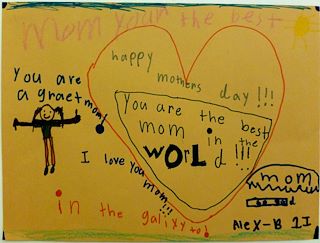 mom your the best
happy
mothers
day!!!
You are
a graet
mom!
You are the best
mom in the
worLd!!!
I love you
mom!!!
in the galixy to!
mom
Alex-B 2I